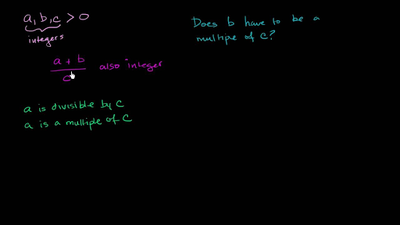 a, b, c > 0
integers
a + b
c
also integer
a is divisible by c
a is a multiple of c
Does b have to be a
multiple of c?